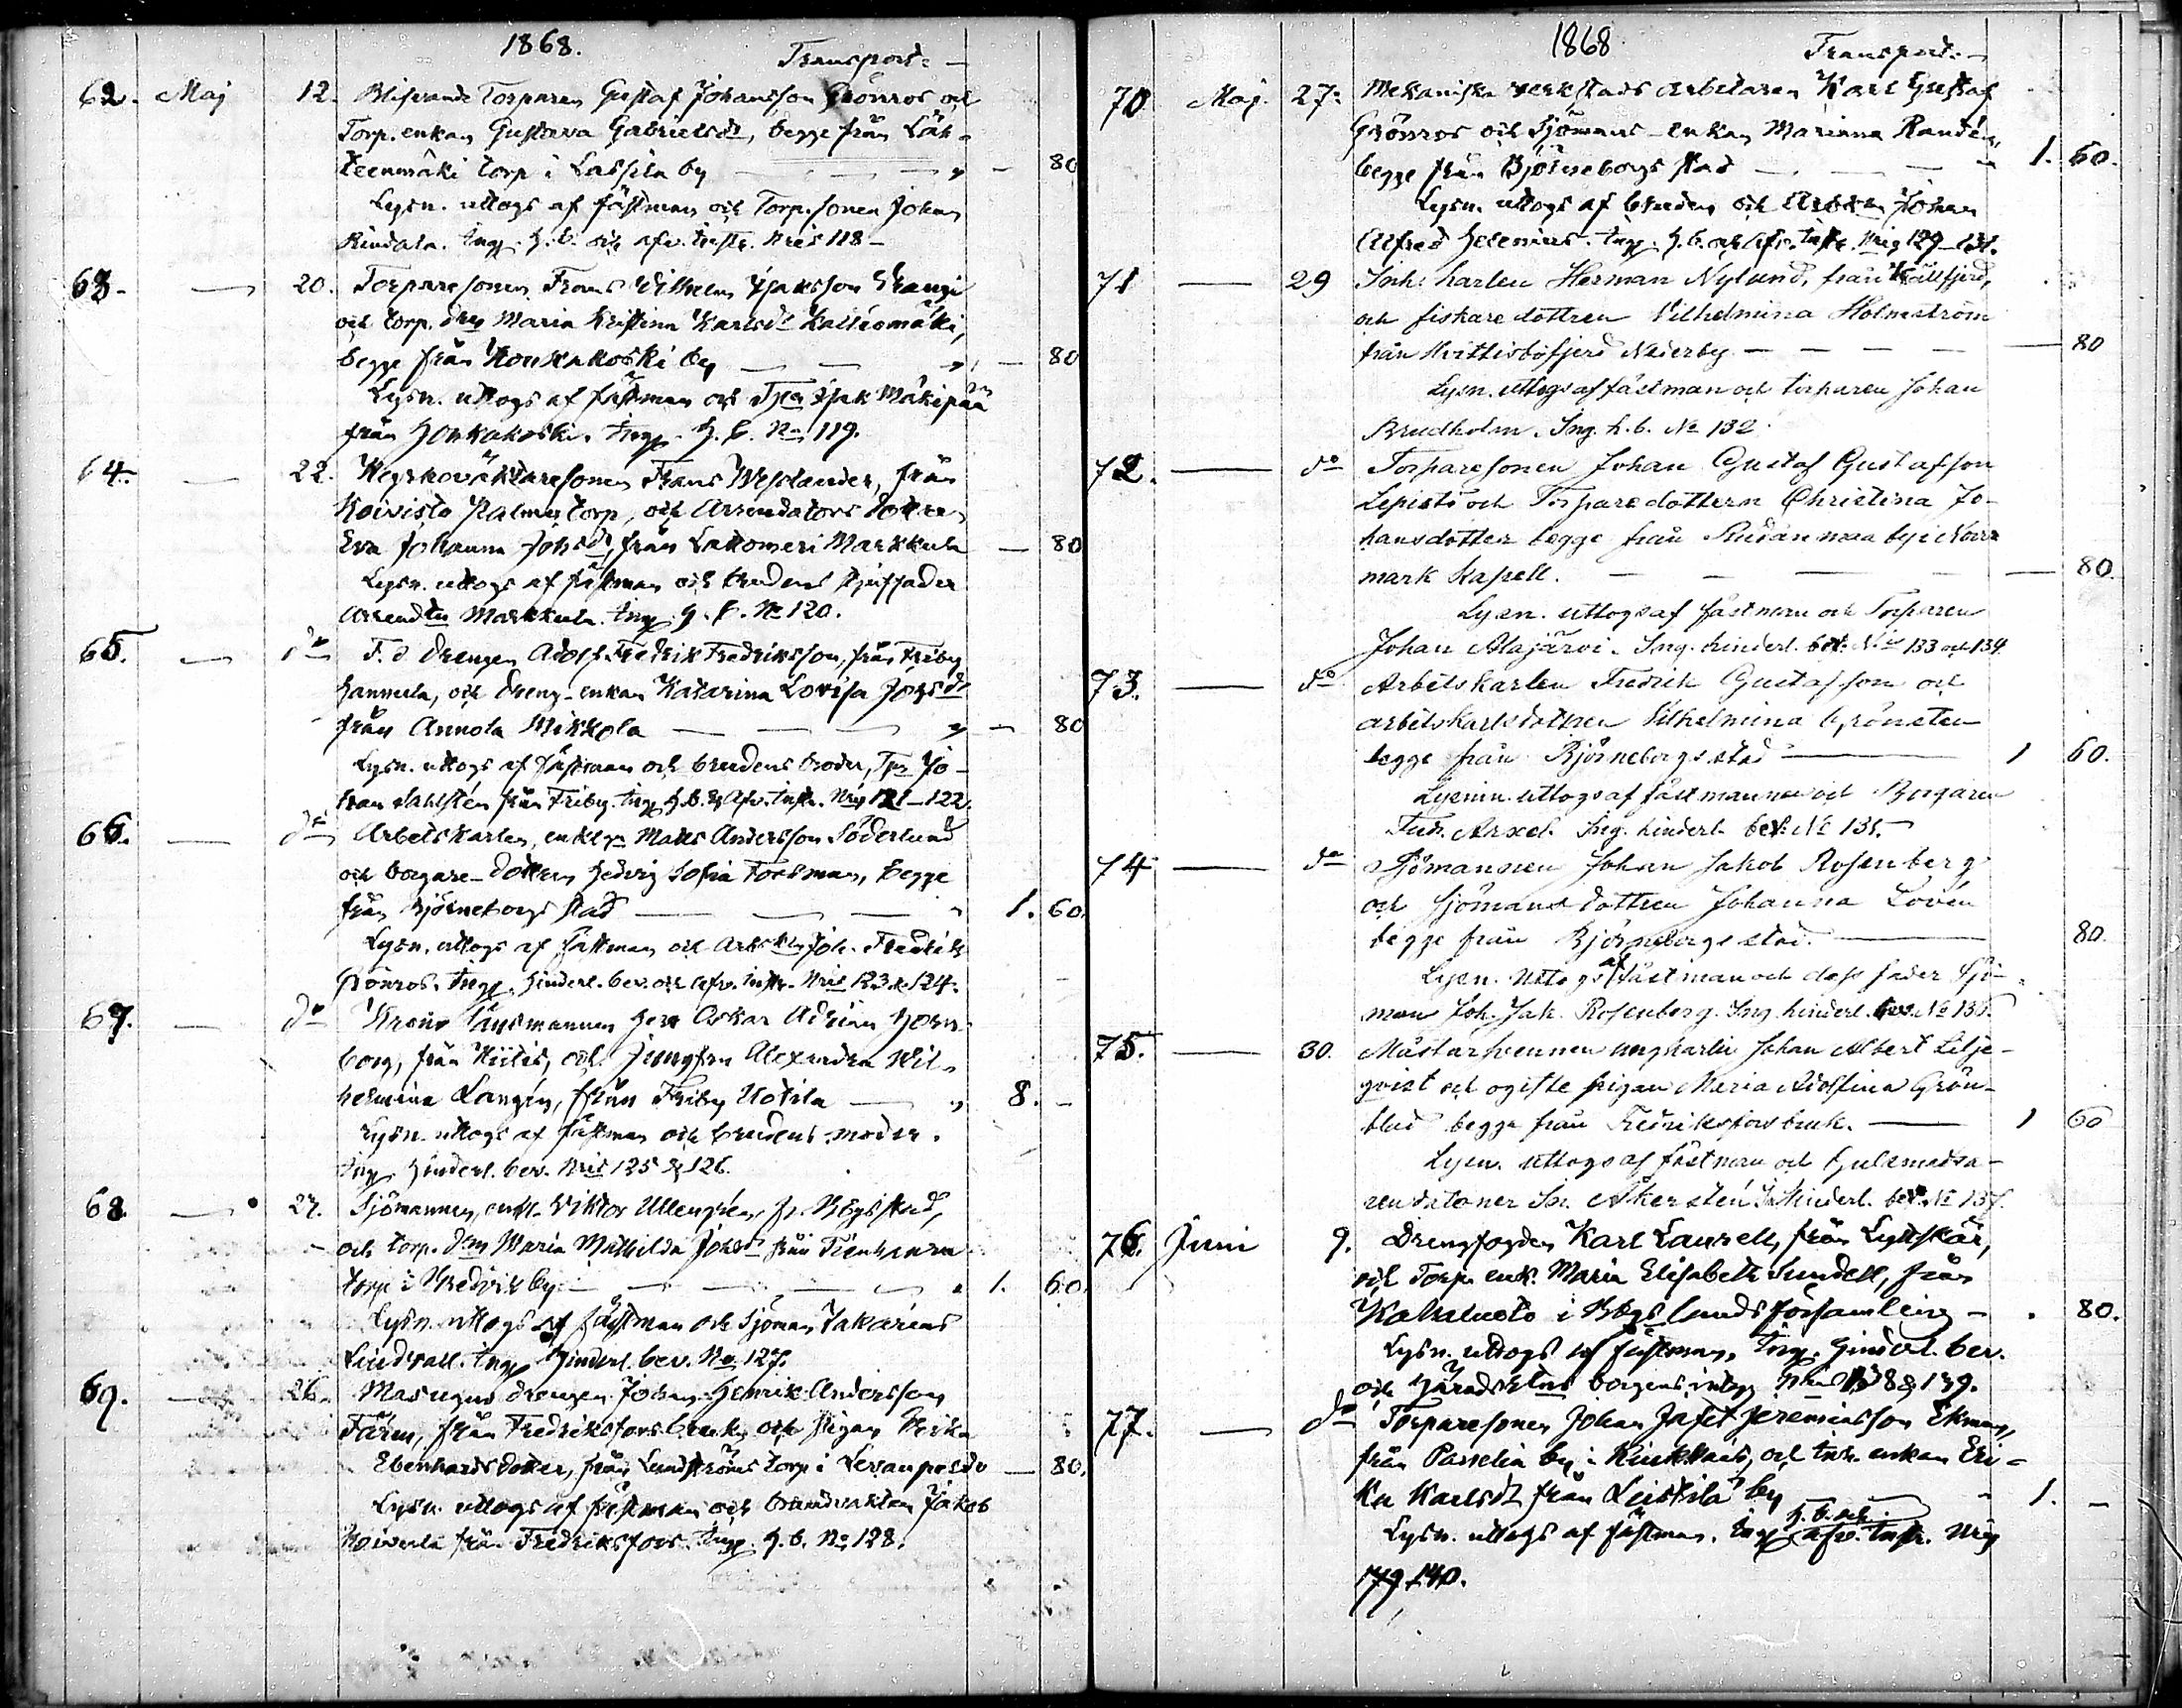 1868.
Transport: —
62. Maj 12. Blifvande Torparen Gustaf Johansson Grönros och
Torp. enkan Gustava Gabrielsdr, begge från Läh-
teenmäki torp i Lassila by — — — „ — 80
Lysn. uttogs af fästman och Torp. sonen Johan
Rindala. Ingg. H. b. och afv. inft. Nris 118 —
63. — 20. Torparesonen Frans Wilhelm Isaksson
och torp. dren Maria Kristina Karlsdr Kalliomäki,
begge från Honkakoski by — — „ — 80
Lysn. uttogs af fästman och Tpn Isak Mäkipää
från Honkakoski. Ingg. H. b. No 119.
64. — 22. Frans Weslander, från
Koivisto torp, och Arrendators dottren
Eva Johanna Johsdr, från Lattomeri Markkula — 80
Lysn. uttogs af fästman och brudens styffader
Arrendtn Markkula. Ingg. H. b. No 120.
65. — do F. d drengen Adolf Fredrik Fredriksson, från Friby
Hannula, och dreng-enkan Katarina Lovisa Johsdr
från Annola Mikkola — — — „ — 80
Lysn. uttogs af fästman och brudens broder, Tpn Jo-
han Dahlstén från Friby. Ingg. H. b. & Afv. inft. Nris 121—122.
66. — do Arbetskarlen, enkl. Mats Andersson Söderlund
och borgare-dottren Hedvig Sofia Forsman, begge
från Björneborgs stad — — — „ 1. 60.
Lysn. uttogs af fästman och Arbskln Joh. Fredrik
Grönros. Ingg. Hinderl. bev. och Afv. inft. Nris 123 & 124.
67. — do Krono länsmannen Herr Oskar Adrian Horn-
borg, från Kiikis, och Jungfru Alexandra Wil-
helmina Langén, från Friby Uotila — „ 8. —
Lysn. uttogs af fästman och brudens moder.
Ingg. Hinderl. bev. Nris 125 & 126.
68 — 27. Sjömannen, enkl. Viktor Ullengrén, fr. Bbgs stad,
och torp. dren Maria Mathilda Johsdr från
torp i Hvedvik by — — — — „ 1. 60.
Lysn. uttogs af fästman och Sjöman Zakarias
Lindvall. Ingg. Hinderl. bev. No 127.
69. — 26. Masugns drengen Johan Henrik Andersson
från Fredriksfors bruk, och pigan
Eberhardsdotter, från Lundströms torp i Levanpelto — 80.
Lysn. uttogs af fästman och brandvakten Jakob
Koivula från Fredriksfors. Ingg. H. b. No 128.
1868
Transport. —
70 Maj. 27. Mekaniska verkstads arbetaren Karl Gustaf
Grönros och Sjömans-enkan Marianna Randén,
begge från Björneborgs stad — — — „ 1. 60.
Lysn. uttogs af bruden och Johan
Alfred Helenius. Ingg. H. b. och Afv. inft. Nris 129—131.
71 — 29 Inh. karlen Herman Nylund, från
och fiskare dottren Vilhelmina Holmström
från Hvittisbofjerd Nederby — — — — — 80
Lysn. uttogs af fästman och torparen Johan
Brudholm. Ing. h. b. No 132.
72. — do Torparesonen Johan Gustaf Gustafson
Lepistö och Torparedottern Christina Jo-
hansdotter begge från by i Norr
mark Kapell. — — — — — 80.
Lysn. uttogs af fästman och Torparen
Johan Alajärvi. Ing. hinderl. bev. Nris 133 och 134
73. — do Arbetskarlen Fredrik Gustafson och
arbetskarlsdottren Vilhelmina Grönsten
begge från Björneborgs stad — 1 60.
Lysnin. uttogs af fästmannen och Borgaren
Fredr. Arxel. Ing. hinderl. bev: No 135. —
74 — do Sjömannen Johan Jakob Rosenberg
och Sjömans dottren Johanna Lovén
begge från Björneborgs stad. — 80.
Lysn. uttogs af fästman och dess fader Sjö-
man Joh. Jak. Rosenberg. Ing. hinderl. bev. No 136.
75. — 30. ungkarlen Johan Albert Lilje-
qvist och ogifte pigan Maria Adolfina Grön-
blad begge från Fredriksfors bruk. — 1 60
Lysn. uttogs af fästman och
Åkerstén Ing. hinderl. bev. No 137.
76. Juni 9. Drengfogden Karl Laurell, från Lyttskär,
och Torp. enk. Maria Elisabeth Sundell, från
Kahaluoto i Bbgs landsförsamling — . 80.
Lysn. uttogs af fästman. Ingg. Hinderl. bev.
och Häradshöns borgens intyg Nris 138 & 139.
77. — do Torparesonen Johan Jafet Jeremiasson Ekman,
från Passelia by i Kiukkais, och inh. enkan Eri-
ka Karlsdr från Leistilä by — „ 1. —
Lysn. uttogs af fästman. Ingg. H. b. och afv. inft. Nris
179 140.